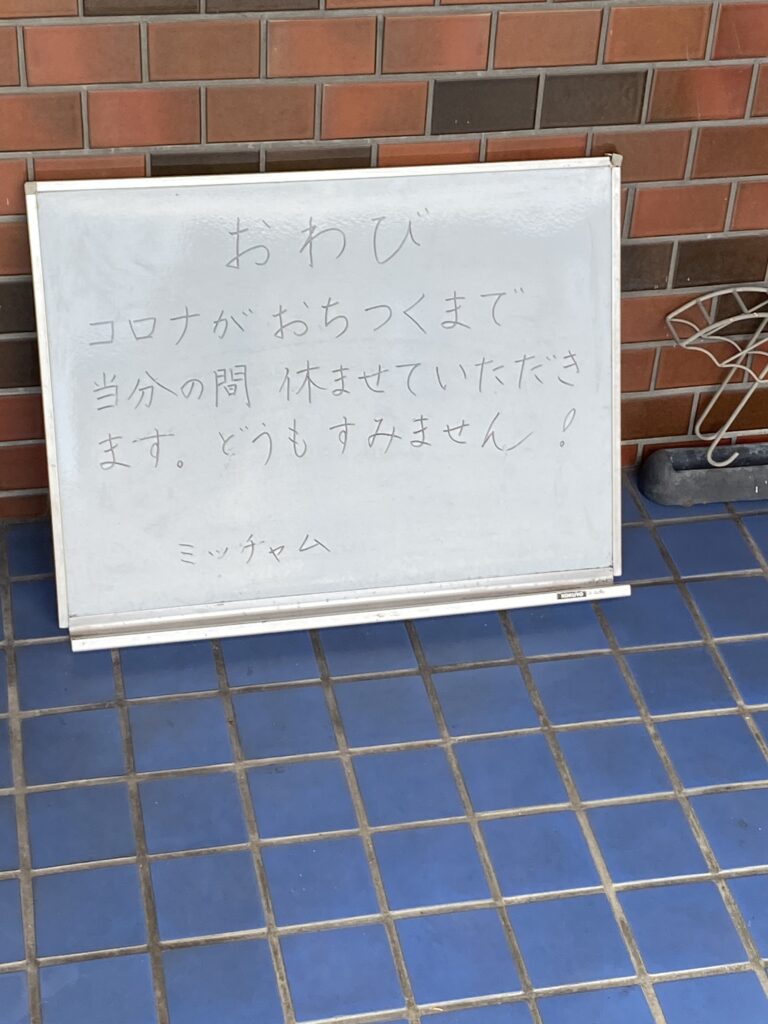 おわび
コロナがおちつくまで
当分の間 休ませていただき
ます。どうもすみません!
ミッチャム